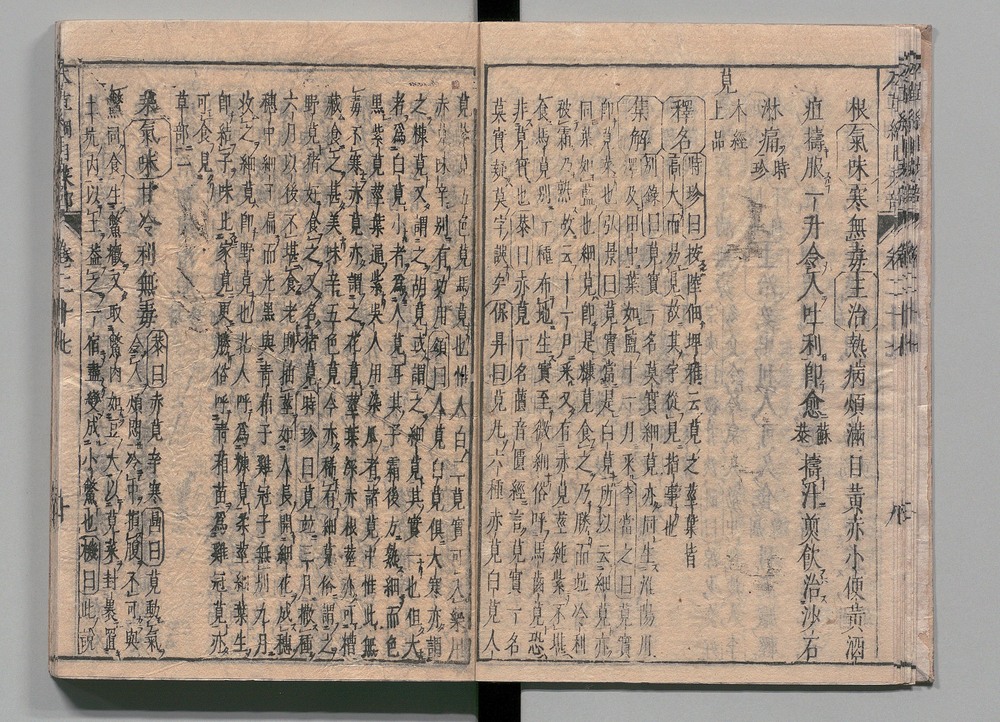 根氣味寒無毒主治熱病煩滿目黃赤小便黃酒
疽擣服一升令人吐利即愈蘇恭擣汁煎飲治沙石
淋痛時珍
莧本經上品
釋名時珍曰按陸佃埤雅云莧之莖葉皆
高大而易見故其字從見指事也
集解別錄曰莧實一名莫實細莧亦同生淮陽川
澤及田中葉如藍十一月采李當之曰莧實
即莧菜也弘景曰莧實當是白莧所以云細莧亦
同葉如藍也細莧即是糠莧食之乃勝而並冷利
被霜乃熟故云十一月采又有赤莧莖純紫不堪
食馬莧別一種布地生實至微細俗呼馬齒莧恐
非莧實也恭曰赤莧一名䕸音匱經言莧實一名
莫實疑莫字誤矣保昇曰莧凡六種赤莧白莧人
莧紫莧五色莧馬莧也惟人白二莧實可入藥用
赤莧味辛別有功用頌曰人莧白莧俱大寒亦謂
之糠莧又謂之胡莧或謂之細莧其實一也但大
者為白莧小者為人莧耳其子霜後方熟細而色
黑紫莧莖葉通紫吳人用染爪者諸莧中惟此無
毒不寒赤莧亦謂之花莧莖葉深赤根莖亦可糟
藏食之甚美味辛五色莧今亦稀有細莧俗謂之
野莧豬好食之又名豬莧時珍曰莧並三月撒種
六月以後不堪食老則抽莖如人長開細花成穗
穗中細子扁而光黑與青葙子雞冠子無別九月
收之細莧即野莧也北人呼為糠莧柔莖細葉生
即結子味比家莧更勝俗呼青葙苗為雞冠莧亦
可食見草部
菜氣味甘冷利無毒恭曰赤莧辛寒鼎曰莧動氣
令人煩悶冷中損腹不可與
鱉同食生鱉癥又取鱉肉如豆大以莧菜封裹置
土坑內以土蓋之一宿盡變成小鱉也機曰此說